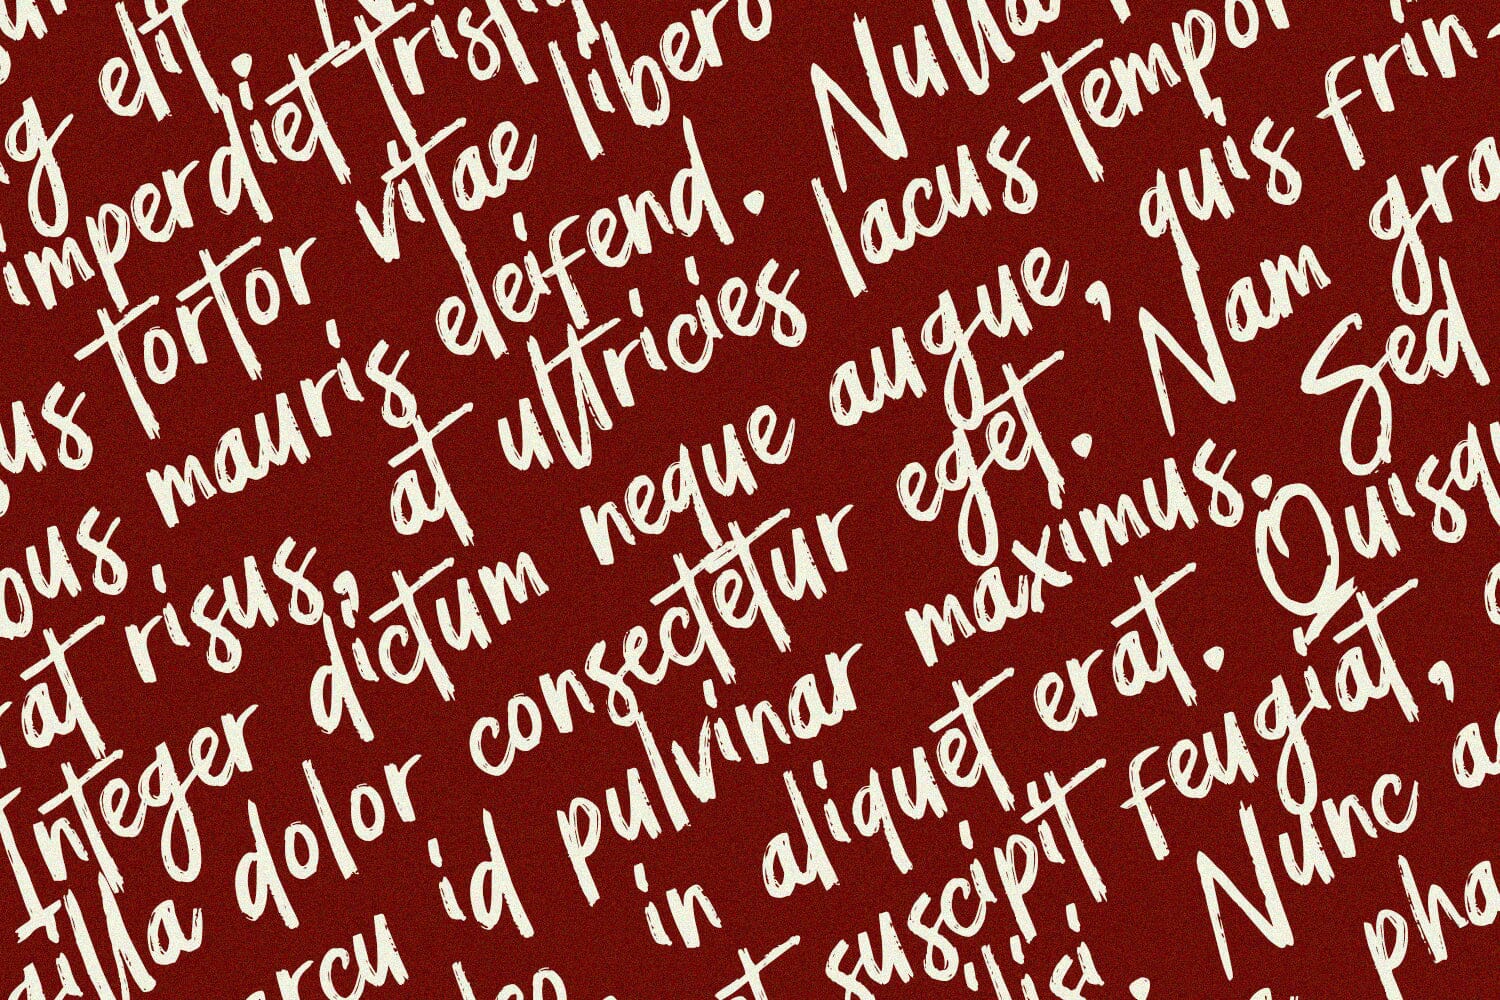 elit.
imperdiet
tortor vitae libero
mauris eleifend. Nulla
risus, at ultricies lacus tempor
Integer dictum neque augue, quis frin-
dolor consectetur eget. Nam gra
arcu id pulvinar maximus. Sed
in aliquet erat. Quisq
suscipit feugiat,
Nunc
pha